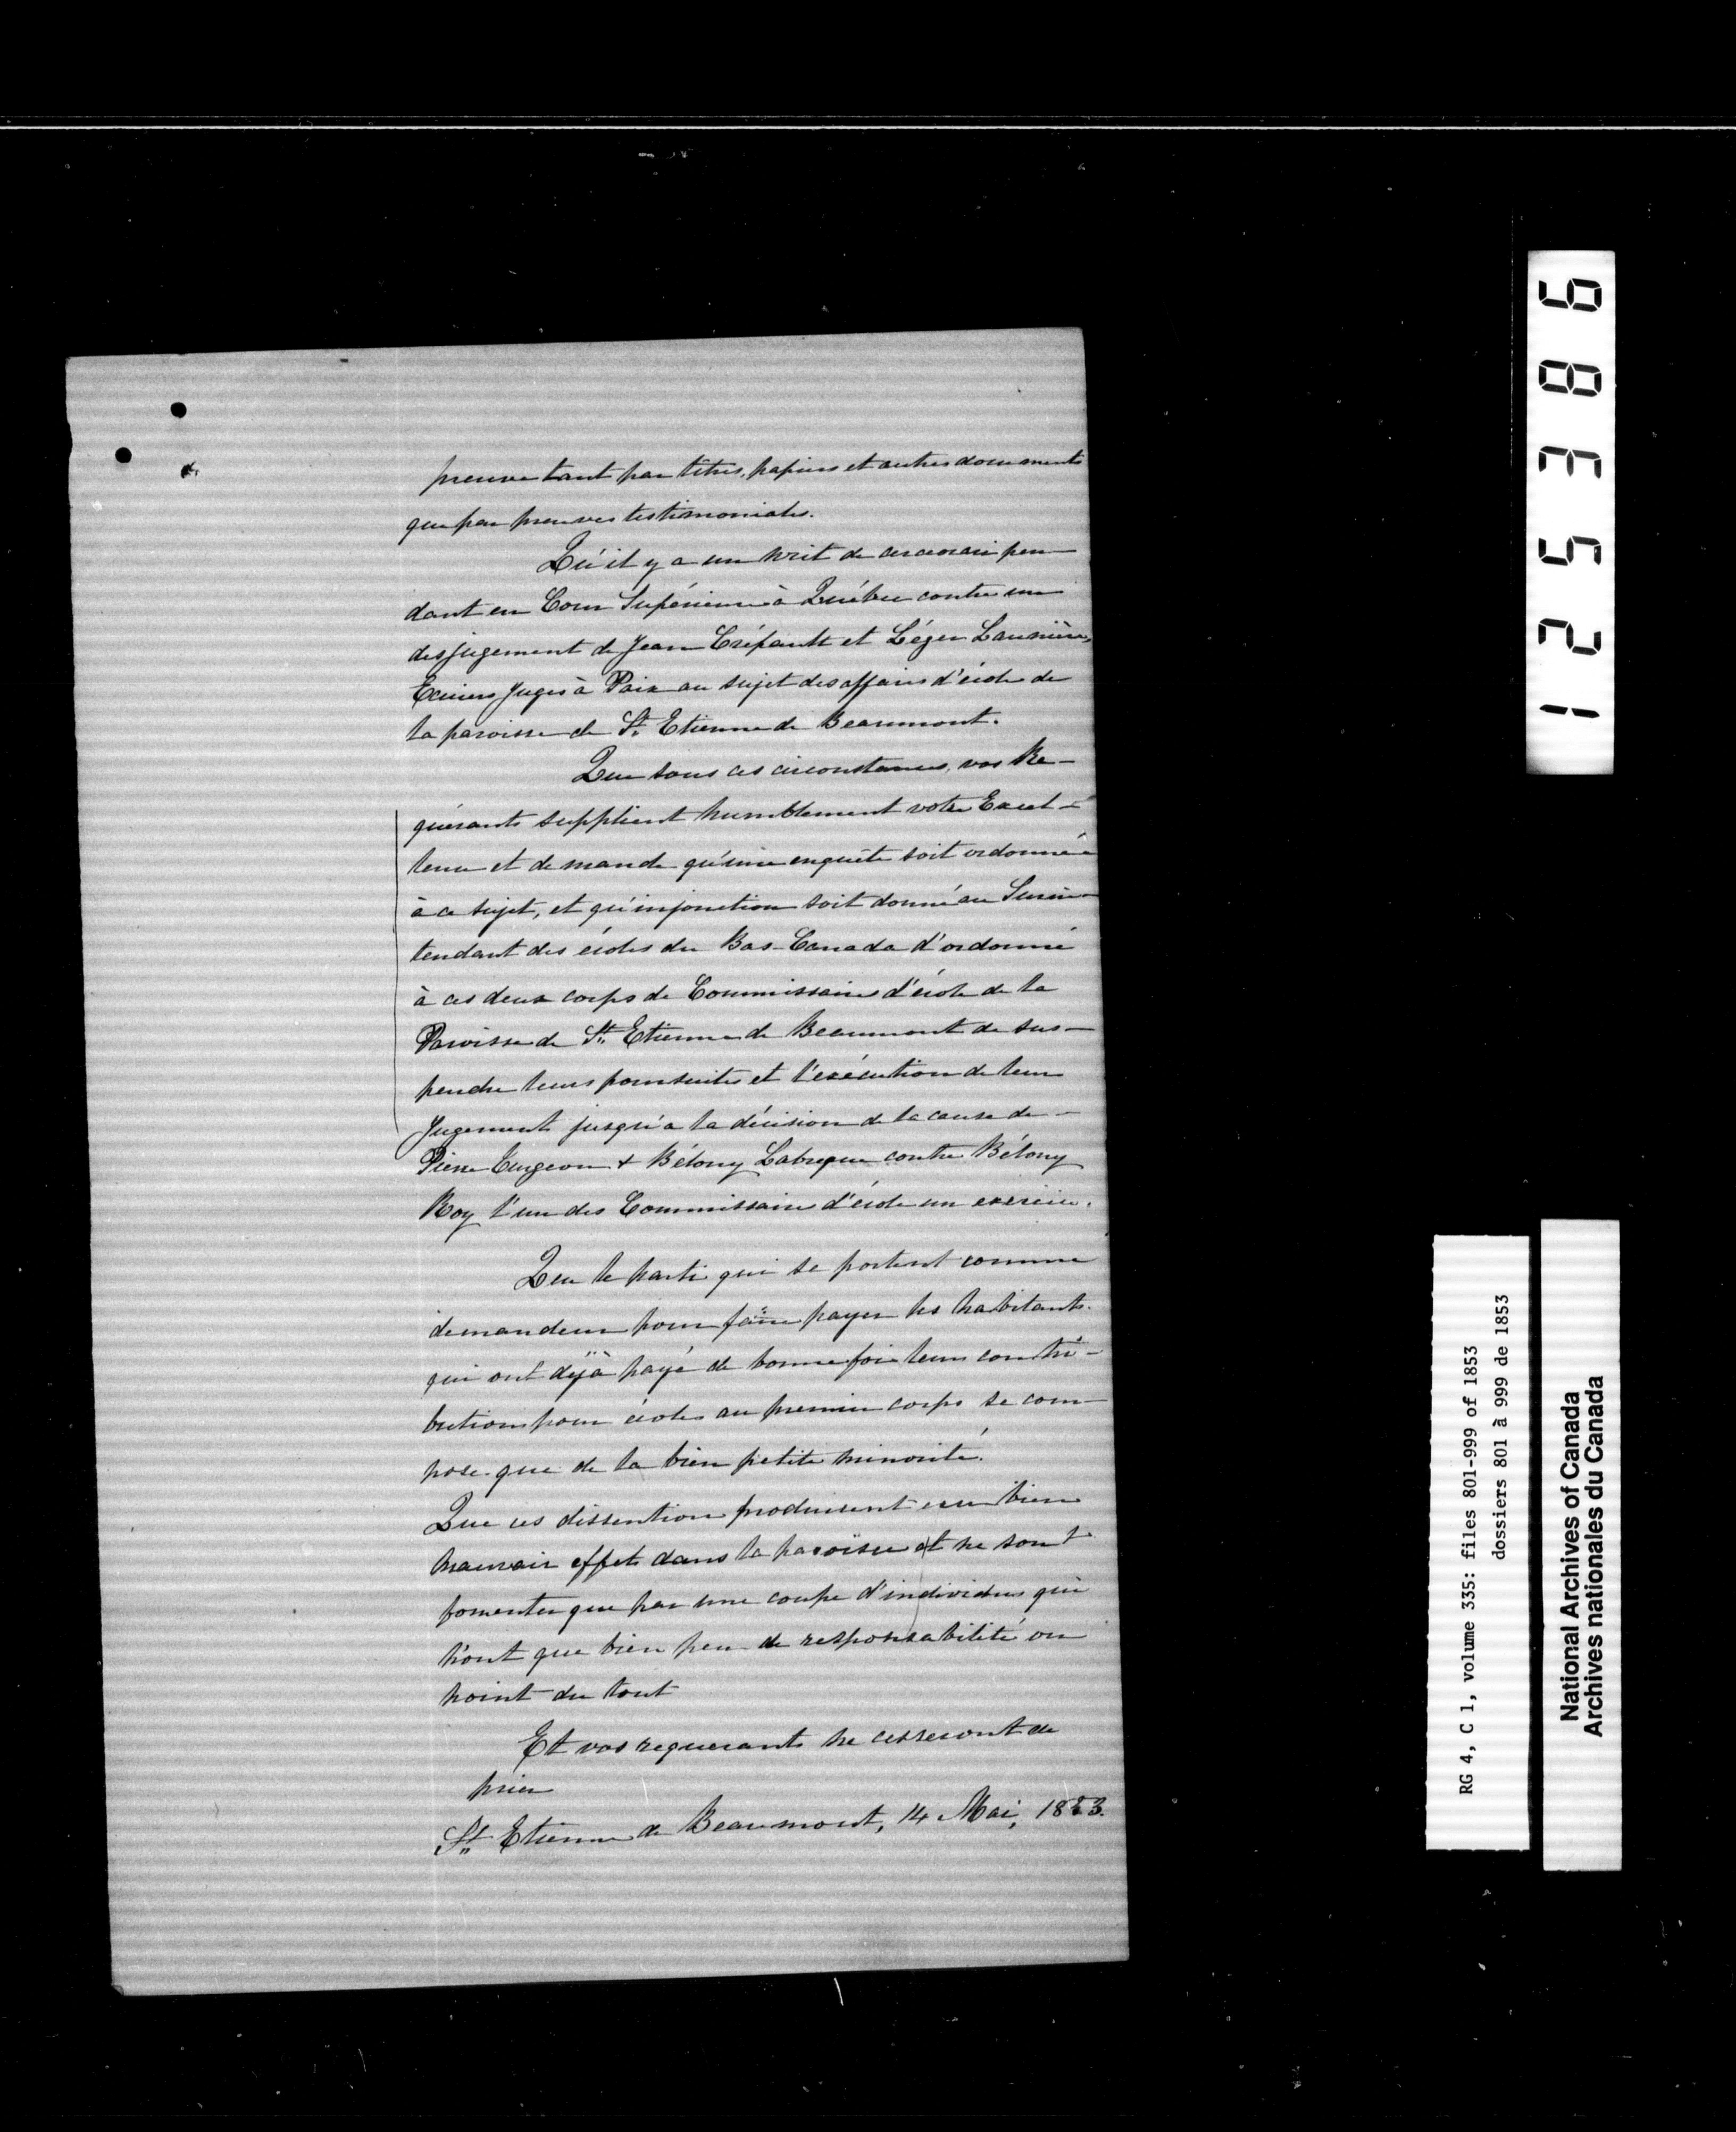 preuve tant par titres, papiers et autres documents
que par preuves testimoniales.
Qu'il y a un writ de certiorari pen-
dant en Cour Supérieure à Québec contre un
des jugement de Jean Crépault et Léger Launière,
Ecuiers Juges à Paix au sujet des affaires d'école de
la paroisse de St. Etienne de Beaumont.
Que sous ces circonstances, vos Re-
quérants supplient humblement votre Excel-
lence et demande qu'une enquête soit ordonnée
à ce sujet, et qu'injonction soit donné au Surin-
tendant des écoles du Bas-Canada d'ordonné
à ces deux corps de Commissaires d'école de la
Paroisse de St. Etienne de Beaumont de sus-
pendre leurs poursuites et l'exécution de leur
Jugement jusqu'a la décision de la cause de
Pierre Turgeon + Bélony Labrèque contre Bélony
Roy l'un des Commissaires d'école en exercice.
Que le parti qui se portent comme
demandeur pour faire payer les habitants
qui ont déjà payé de bonne foi leurs contri-
butions pour écoles au premier corps se com-
pose que de la bien petite minorité.
Que ces dissention produisent un bien
mauvais effets dans la paroisse et ne sont
fomenter que par une coupe d'individus qui
n'ont que bien peu de responsabilité ou
point du tout
Et vos requerants ne cesseront de
prier
St. Etienne de Beaumont, 14 Mai, 1853.
125386
RG 4, C 1, volume 335: files 801-999 of 1853
dossiers 801 à 999 de 1853
National Archives of Canada
Archives nationales du Canada